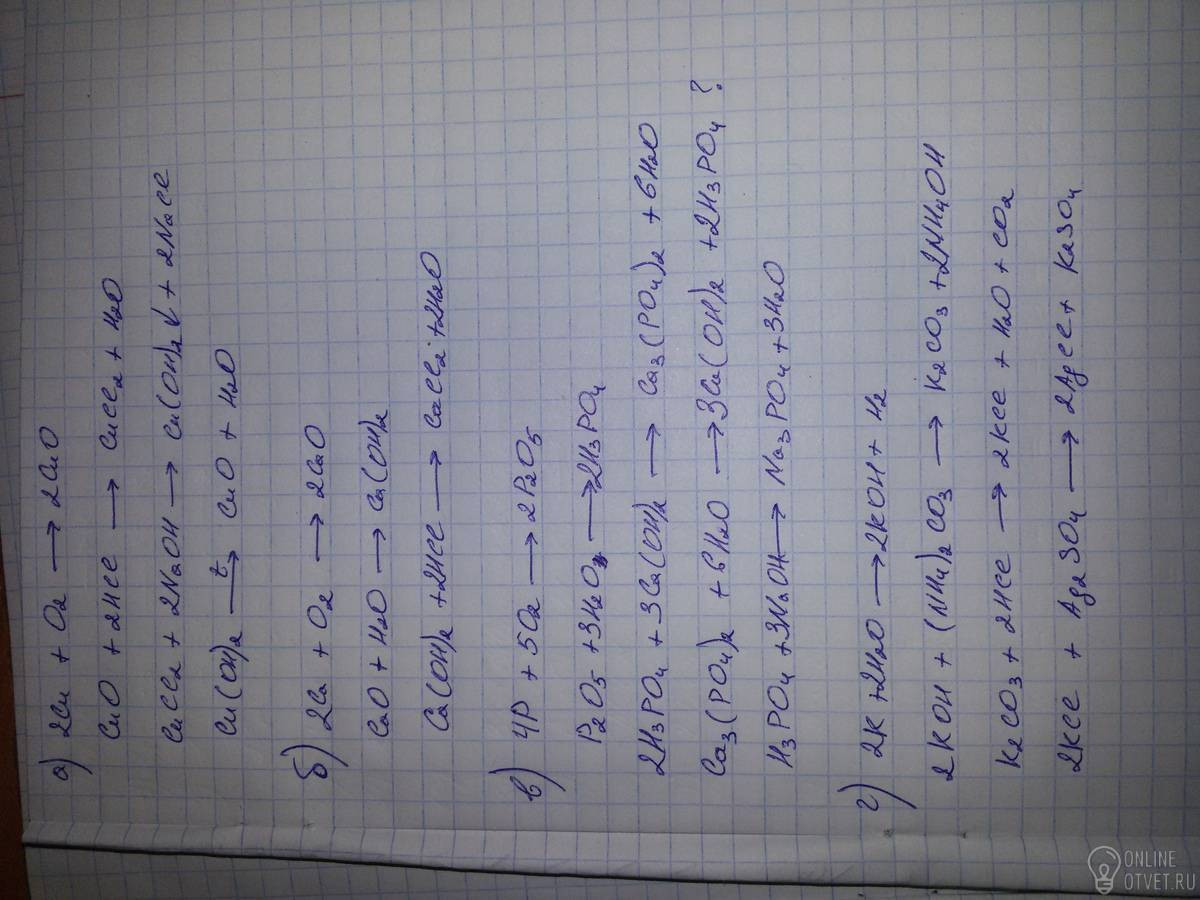 а) 2Cu + O2 ⟶ 2CuO
CuO + 2HCl ⟶ CuCl2 + H2O
CuCl2 + 2NaOH ⟶ Cu(OH)2↓ + 2NaCl
Cu(OH)2 ⟶t CuO + H2O
б) 2Ca + O2 ⟶ 2CaO
CaO + H2O ⟶ Ca(OH)2
Ca(OH)2 + 2HCl ⟶ CaCl2 + 2H2O
в) 4P + 5O2 ⟶ 2P2O5
P2O5 + 3H2O ⟶ 2H3PO4
2H3PO4 + 3Ca(OH)2 ⟶ Ca3(PO4)2 + 6H2O
Ca3(PO4)2 + 6H2O ⟶ 3Ca(OH)2 + 2H3PO4 ?
H3PO4 + 3NaOH ⟶ Na3PO4 + 3H2O
г) 2K + 2H2O ⟶ 2KOH + H2
2KOH + (NH4)2CO3 ⟶ K2CO3 + 2NH4OH
K2CO3 + 2HCl ⟶ 2KCl + H2O + CO2
2KCl + Ag2SO4 ⟶ 2AgCl + K2SO4
ONLINE
OTVET.RU